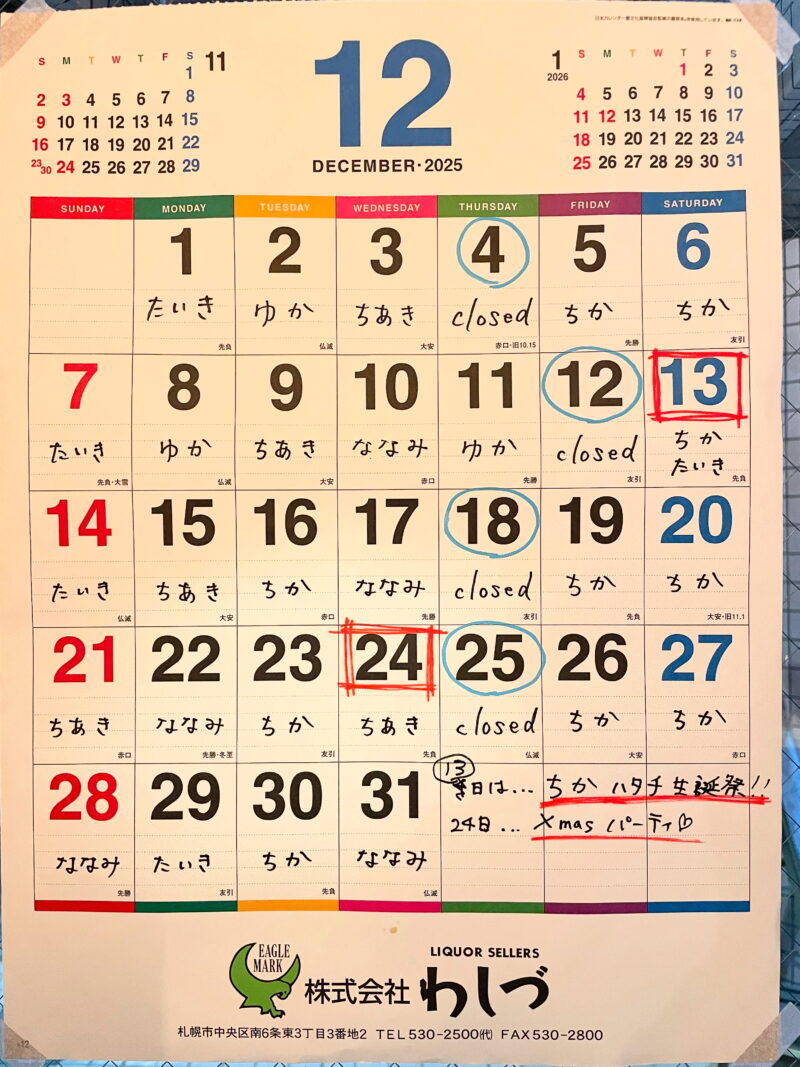 日本カレンダー暦文化振興協会監修の暦原本」を使用しています。
S M T W T F S 11
1
2 3 4 5 6 7 8
9 10 11 12 13 14 15
16 17 18 19 20 21 22
23/30 24 25 26 27 28 29
12
DECEMBER・2025
1 S M T W T F S
2026 1 2 3
4 5 6 7 8 9 10
11 12 13 14 15 16 17
18 19 20 21 22 23 24
25 26 27 28 29 30 31
SUNDAY MONDAY TUESDAY WEDNESDAY THURSDAY FRIDAY SATURDAY
1 2 3 4 5 6
たいき ゆか ちあき closed ちか ちか
先負 仏滅 大安 赤口・旧10.15 先勝 友引
7 8 9 10 11 12 13
たいき ゆか ちあき ななみ ゆか closed ちか
たいき
先負・大雪 仏滅 大安 赤口 先勝 友引 先負
14 15 16 17 18 19 20
たいき ちあき ちか ななみ closed ちか ちか
仏滅 大安 赤口 先勝 友引 先負 大安・旧11.1
21 22 23 24 25 26 27
ちあき ななみ ちか ちあき closed ちか ちか
赤口 先勝・冬至 友引 先負 仏滅 大安 赤口
28 29 30 31
ななみ たいき ちか ななみ
先勝 友引 先負 仏滅
13
日は... ちか ハタチ生誕祭!!
24日... Xmas パーティ♡
EAGLE
MARK
LIQUOR SELLERS
株式会社 わしづ
札幌市中央区南6条東3丁目3番地2 TEL530-2500㈹ FAX530-2800